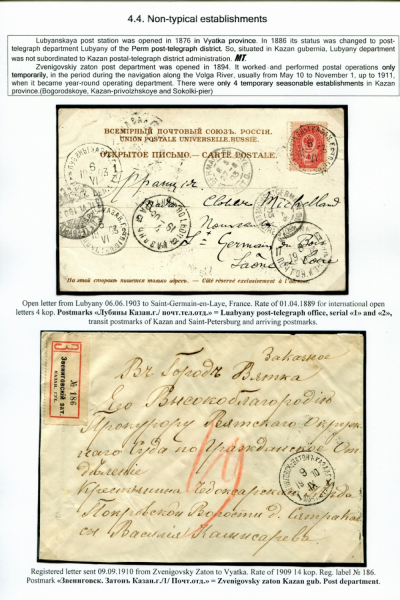 4.4. Non-typical establishments
Lubyanskaya post station was opened in 1876 in Vyatka province. In 1886 its status was changed to post-
telegraph department Lubyany of the Perm post-telegraph district. So, situated in Kazan gubernia, Lubyany department
was not subordinated to Kazan postal-telegraph district administration. МТ.
Zvenigovsky zaton post department was opened in 1894. It worked and performed postal operations only
temporarily, in the period during the navigation along the Volga River, usually from May 10 to November 1, up to 1911,
when it became year-round operating department. There were only 4 temporary seasonable establishments in Kazan
province.(Bogorodskoye, Kazan-privolzhskoye and Sokolki-pier)
ВСЕМІРНЫЙ ПОЧТОВЫЙ СОЮЗЪ. РОССІЯ.
UNION POSTALE UNIVERSELLE. RUSSIE.
ОТКРЫТОЕ ПИСЬМО.—CARTE POSTALE.
Франція.
St Germain du Bois
Saône & Loire
На этой сторонѣ пишется только адресъ. — Côté réservé exclusivement à l'adresse.
Open letter from Lubyany 06.06.1903 to Saint-Germain-en-Laye, France. Rate of 01.04.1889 for international open
letters 4 kop. Postmarks «Лубяны Казан.г./ почт.тел.отд.» = Luabyany post-telegraph office, serial «1» and «2»,
transit postmarks of Kazan and Saint-Petersburg and arriving postmarks.
З
Звениговскій зат.
Казан. губ.
№ 186
Заказное
Въ Городъ Вятка
Его Высокоблагородію
Прокурору Вятскаго Окруж-
наго Суда по Гражданское От
дѣленіе
Крестьянина Чебоксарскаго уѣзда
Покровской Волости д.
Василія
Registered letter sent 09.09.1910 from Zvenigovsky Zaton to Vyatka. Rate of 1909 14 kop. Reg. label № 186.
Postmark «Звениговск. Затонъ Казан.г./1/ Почт.отд.» = Zvenigovsky zaton Kazan gub. Post department.